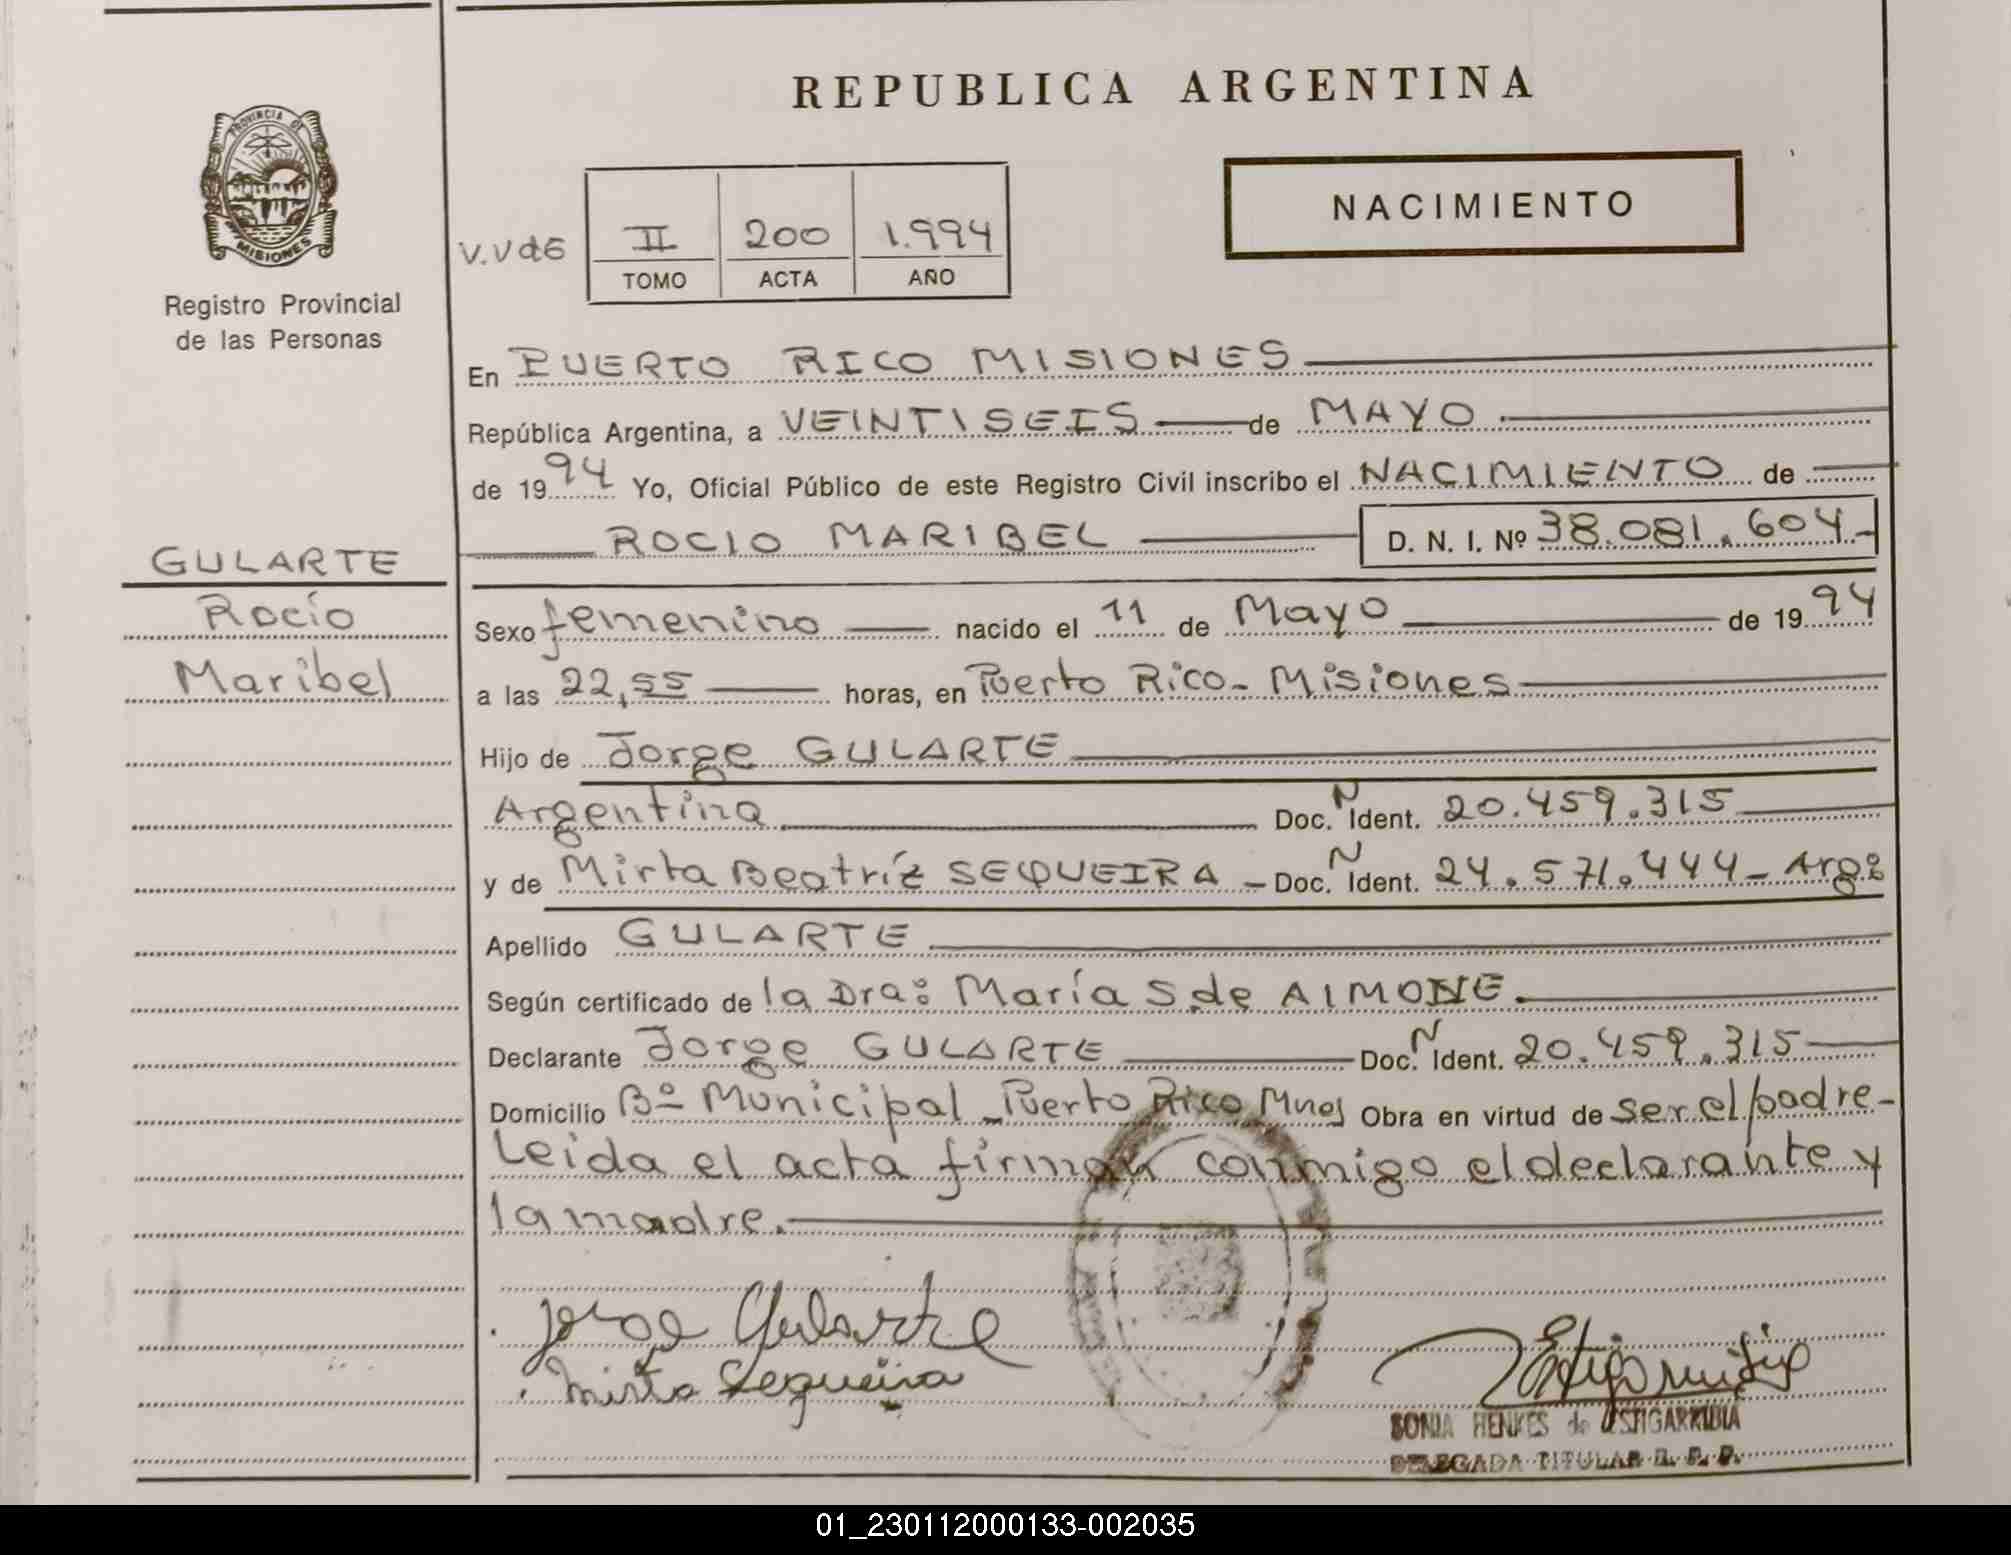 REPUBLICA ARGENTINA
PROVINCIA DE
MISIONES
Registro Provincial
de las Personas
NACIMIENTO
V.V de E
II 200 1.994
TOMO ACTA AÑO
En PUERTO RICO MISIONES
República Argentina, a VEINTISEIS de MAYO
de 1994 Yo, Oficial Público de este Registro Civil inscribo el NACIMIENTO de
ROCIO MARIBEL D. N. I. Nº 38.081.604.-
GULARTE
Rocío
Maribel
Sexo femenino nacido el 11 de Mayo de 1994
a las 22,55 horas, en Puerto Rico - Misiones
Hijo de Jorge GULARTE
Argentina Doc. N Ident. 20.459.315
y de Mirta Beatríz SEQUEIRA - Doc. N Ident. 24.571.444 - Arg.
Apellido GULARTE
Según certificado de la Dra: María S. de AIMONE.
Declarante Jorge GULARTE Doc. N Ident. 20.459.315
Domicilio Bº Municipal - Puerto Rico Mnes Obra en virtud de ser el padre -
Leida el acta firman conmigo el declarante y
la madre.
Jorge Gularte
Mirta Sequeira
SONIA HENKES de ESTIGARRIBIA
DELEGADA TITULAR R. P. P.
01_230112000133-002035